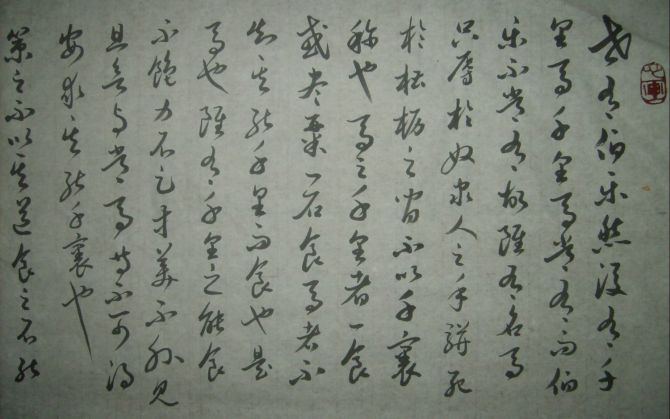 世有伯樂然後有千
里馬千里馬常有而伯
樂不常有故雖有名馬
只辱於奴隸人之手駢死
於槽枥之间不以千裏
稱也馬之千里者一食
或盡粟一石食馬者不
知其能千里而食也是
馬也雖有千里之能食
不飽力不足才美不外見
且欲與常馬等不可得
安求其能千裏也
策之不以其道食之不能